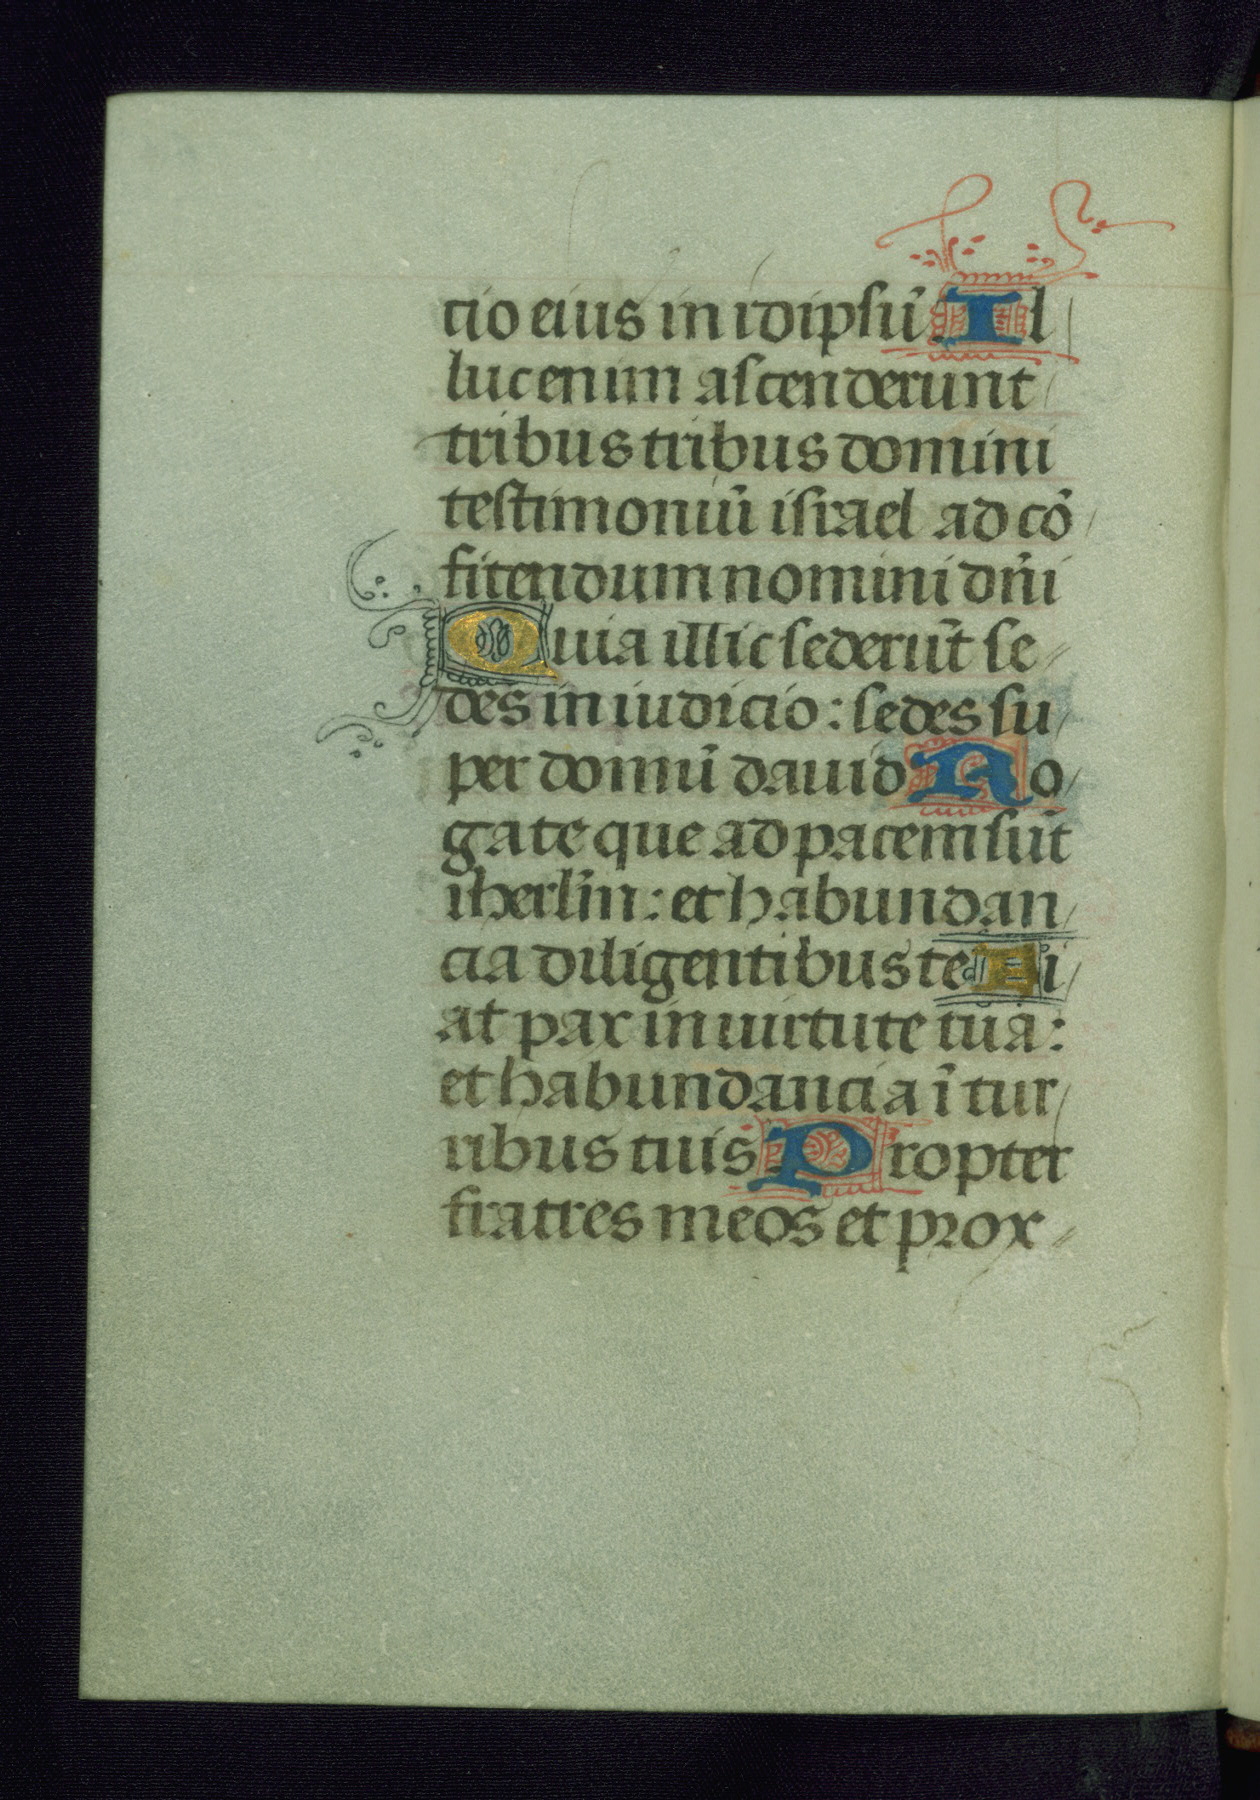 tio eius in idipsũ Il
luc enim ascenderunt
tribus tribus domini
testimoniũ israel ad cõ
fitendum nomini dñi
Quia illic sederũt se
des in iudicio: sedes su
per domũ dauid Ro
gate que ad pacem sũt
iherl̃m: et habundan
cia diligentibus te Fi
at pax in uirtute tua:
et habundancia ĩ tur
ribus tuis Propter
fratres meos et prox